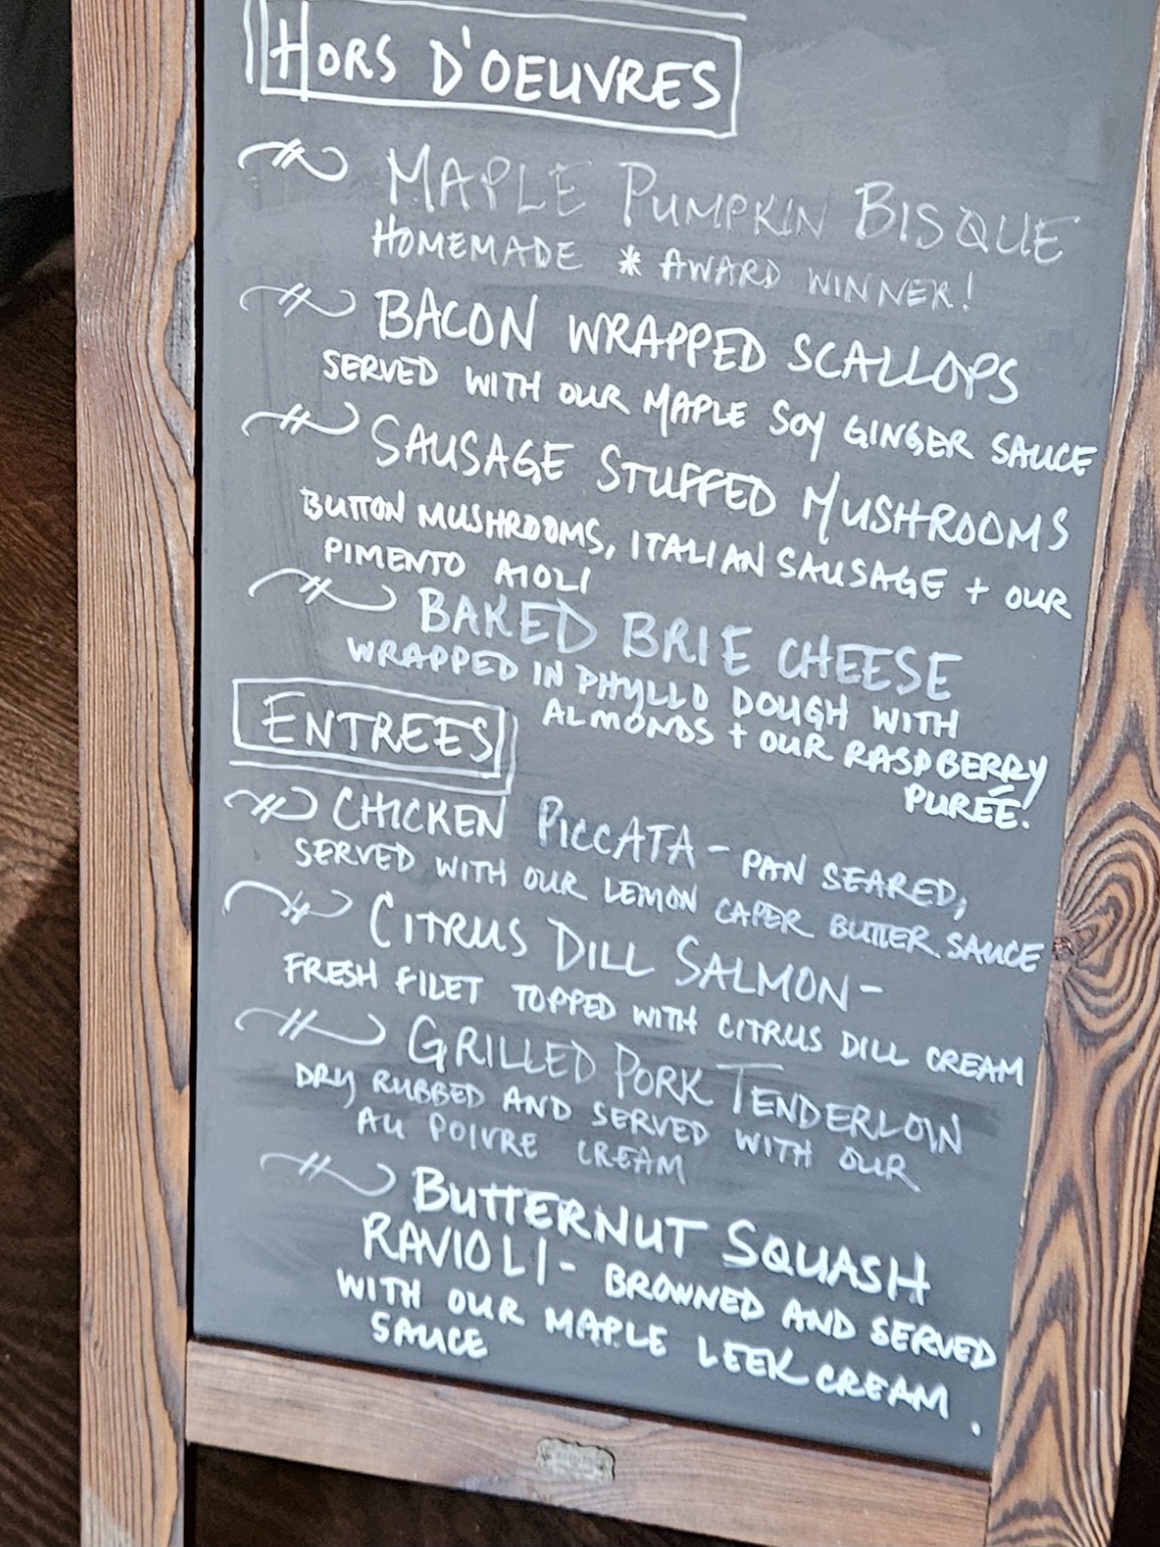 HORS D'OEUVRES
MAPLE PUMPKIN BISQUE
HOMEMADE * AWARD WINNER!
BACON WRAPPED SCALLOPS
SERVED WITH OUR MAPLE SOY GINGER SAUCE
SAUSAGE STUFFED MUSHROOMS
BUTTON MUSHROOMS, ITALIAN SAUSAGE + OUR
PIMENTO AIOLI
BAKED BRIE CHEESE
WRAPPED IN PHYLLO DOUGH WITH
ALMONDS + OUR RASPBERRY
PURÉE!
ENTREES
CHICKEN PICCATA - PAN SEARED,
SERVED WITH OUR LEMON CAPER BUTTER SAUCE
CITRUS DILL SALMON -
FRESH FILET TOPPED WITH CITRUS DILL CREAM
GRILLED PORK TENDERLOIN
DRY RUBBED AND SERVED WITH OUR
AU POIVRE CREAM
BUTTERNUT SQUASH
RAVIOLI - BROWNED AND SERVED
WITH OUR MAPLE LEEK CREAM
SAUCE .